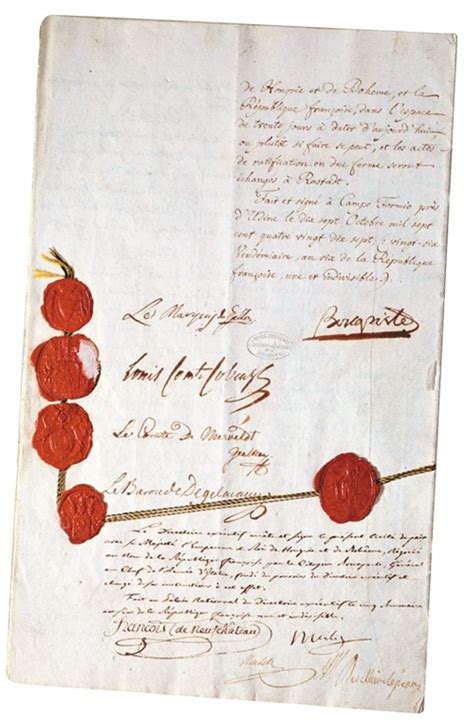 de Hongrie et de Boheme, et la
République françoise, dans l'espace
de trente jours à dater d'aujourd'hui
ou plutôt si faire se peut, et les actes
de ratification en due forme seront
échangés à Rastadt.
Fait et signé à Campo Formio près
d'Udine le dix sept Octobre mil sept
cent quatre vingt dix sept (vingt-six
Vendemiaire, an six de la République
françoise, une et indivisible.)
Le Marquis de Gallo
Bonaparte
Louis Comte Cobenzl
Le Comte De Merveldt
Le Baron de Degelmann
Le Directoire exécutif arrête et signe le présent traité de paix
avec Sa Majesté l'Empereur et Roi de Hongrie et de Bohême, négocié
au Nom de la République française par le Citoyen Bonaparte, Général
en Chef de l'Armée d'Italie, fondé de pouvoirs du Directoire exécutif et
chargé de ses instructions à cet effet.
Fait au Palais National du Directoire exécutif le cinq Brumaire
an six de la République française une et indivisible.
François (de Neufchateau)